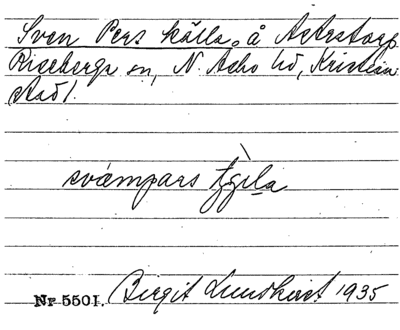 Sven Pers källa å Aeterstorp
Riseberga sn, N. Åsbo hd, Kristian
stad l.
svàmpars
Nr 5501. Birgit Lundkvist 1935